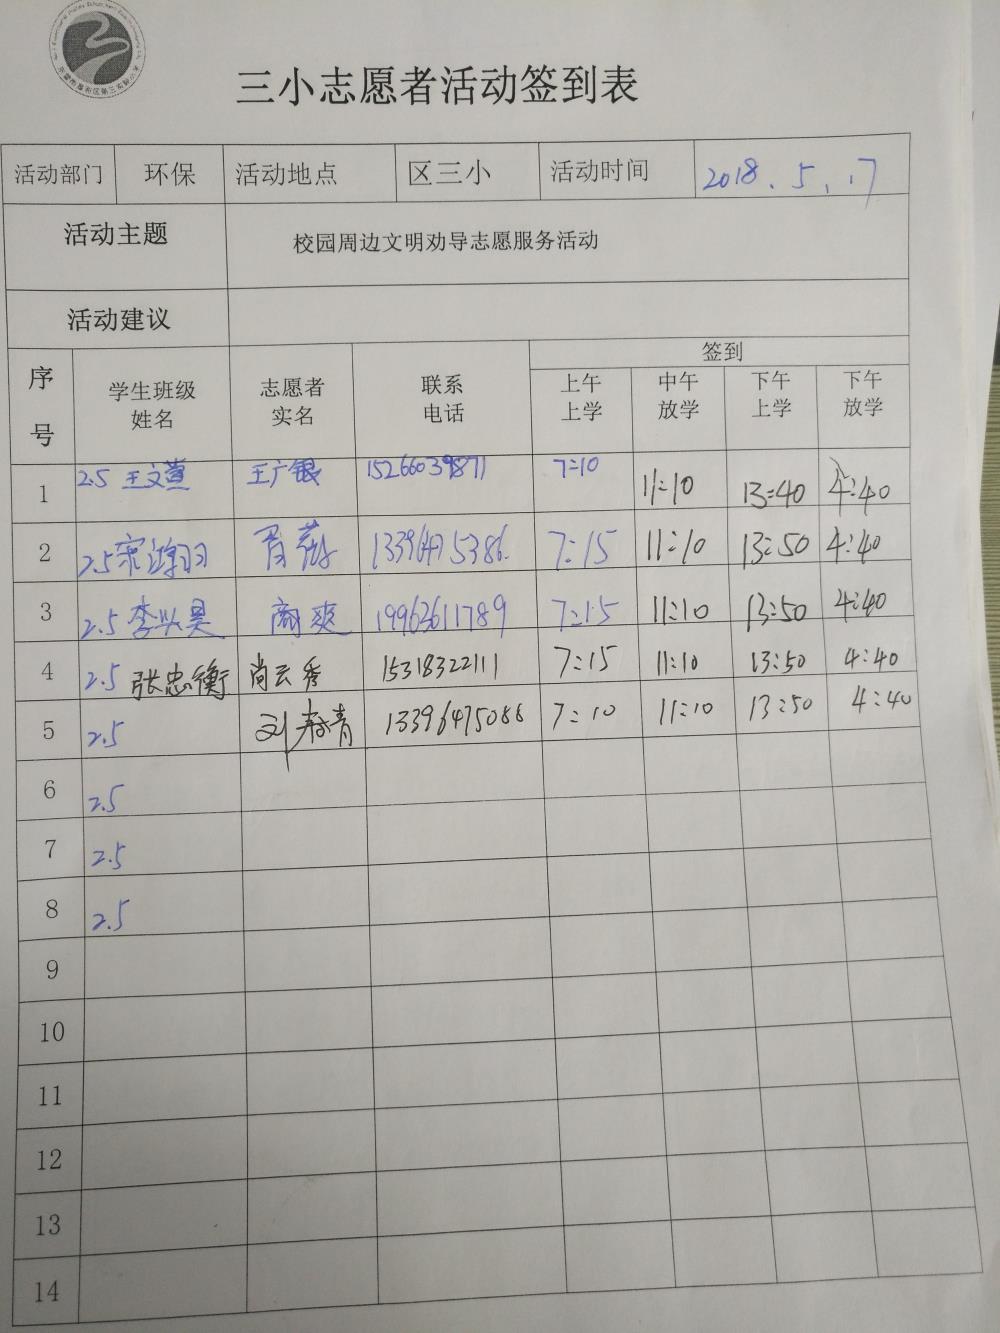 三小志愿者活动签到表
活动部门 环保 活动地点 区三小 活动时间 2018.5.17
活动主题 校园周边文明劝导志愿服务活动
活动建议
序号 学生班级姓名 志愿者实名 联系电话 签到
上午上学 中午放学 下午上学 下午放学
1 2.5 王文萱 王广银 15266039871 7:10 11:10 13:40 4:40
2 2.5 宋鸿羽 肖薇 13396475386. 7:15 11:10 13:50 4:40
3 2.5 李兴昊 商爽 19963611789 7:15 11:10 13:50 4:40
4 2.5 张忠衡 尚云秀 15318322111 7:15 11:10 13:50 4:40
5 2.5 刘春青 13396475088 7:10 11:10 13:50 4:40
6 2.5
7 2.5
8 2.5
9
10
11
12
13
14